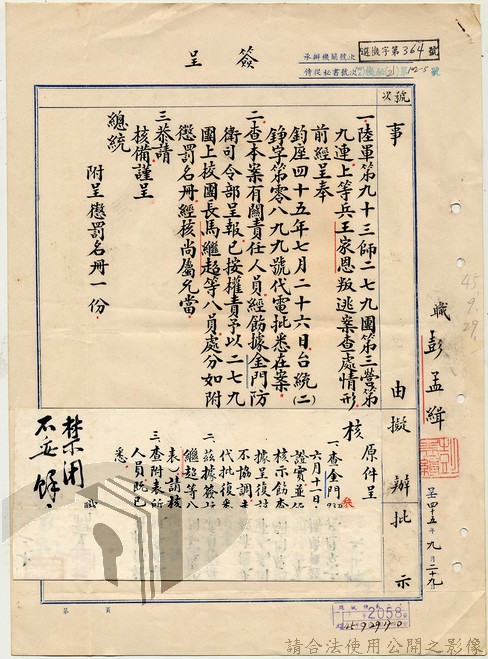 簽呈
選機字第364號
承辦機關號次
傳從秘書號次
號次
事由擬辦批示
一、陸軍第九十三師二七九團第三營第
九連上等兵王家恩叛逃案查處情形
前經呈奉
鈞座四十五年七月二十六日台統(二)
錚字第零八九九號代電批悉在案
二、查本案有關責任人員經飭據金門防
衛司令部呈報已按權責予以二七九
團上校團長馬繼超等八員處分如附
懲罰名冊經核尚屬允當
三、恭請
核備謹呈
總統
附呈懲罰名冊一份
職彭孟緝
呈四十五年九月二十九日
45.9.29.
原件呈
核
一、查金門
六月十一日
證實並
核示飭查
據呈復
不協調
代批復悉
二、茲據簽
繼超等八
表)請核
三、查附表所
人員既已
悉
職
禁閉
不妥餘
2058
45.9.29
第 頁
請合法使用公開之影像